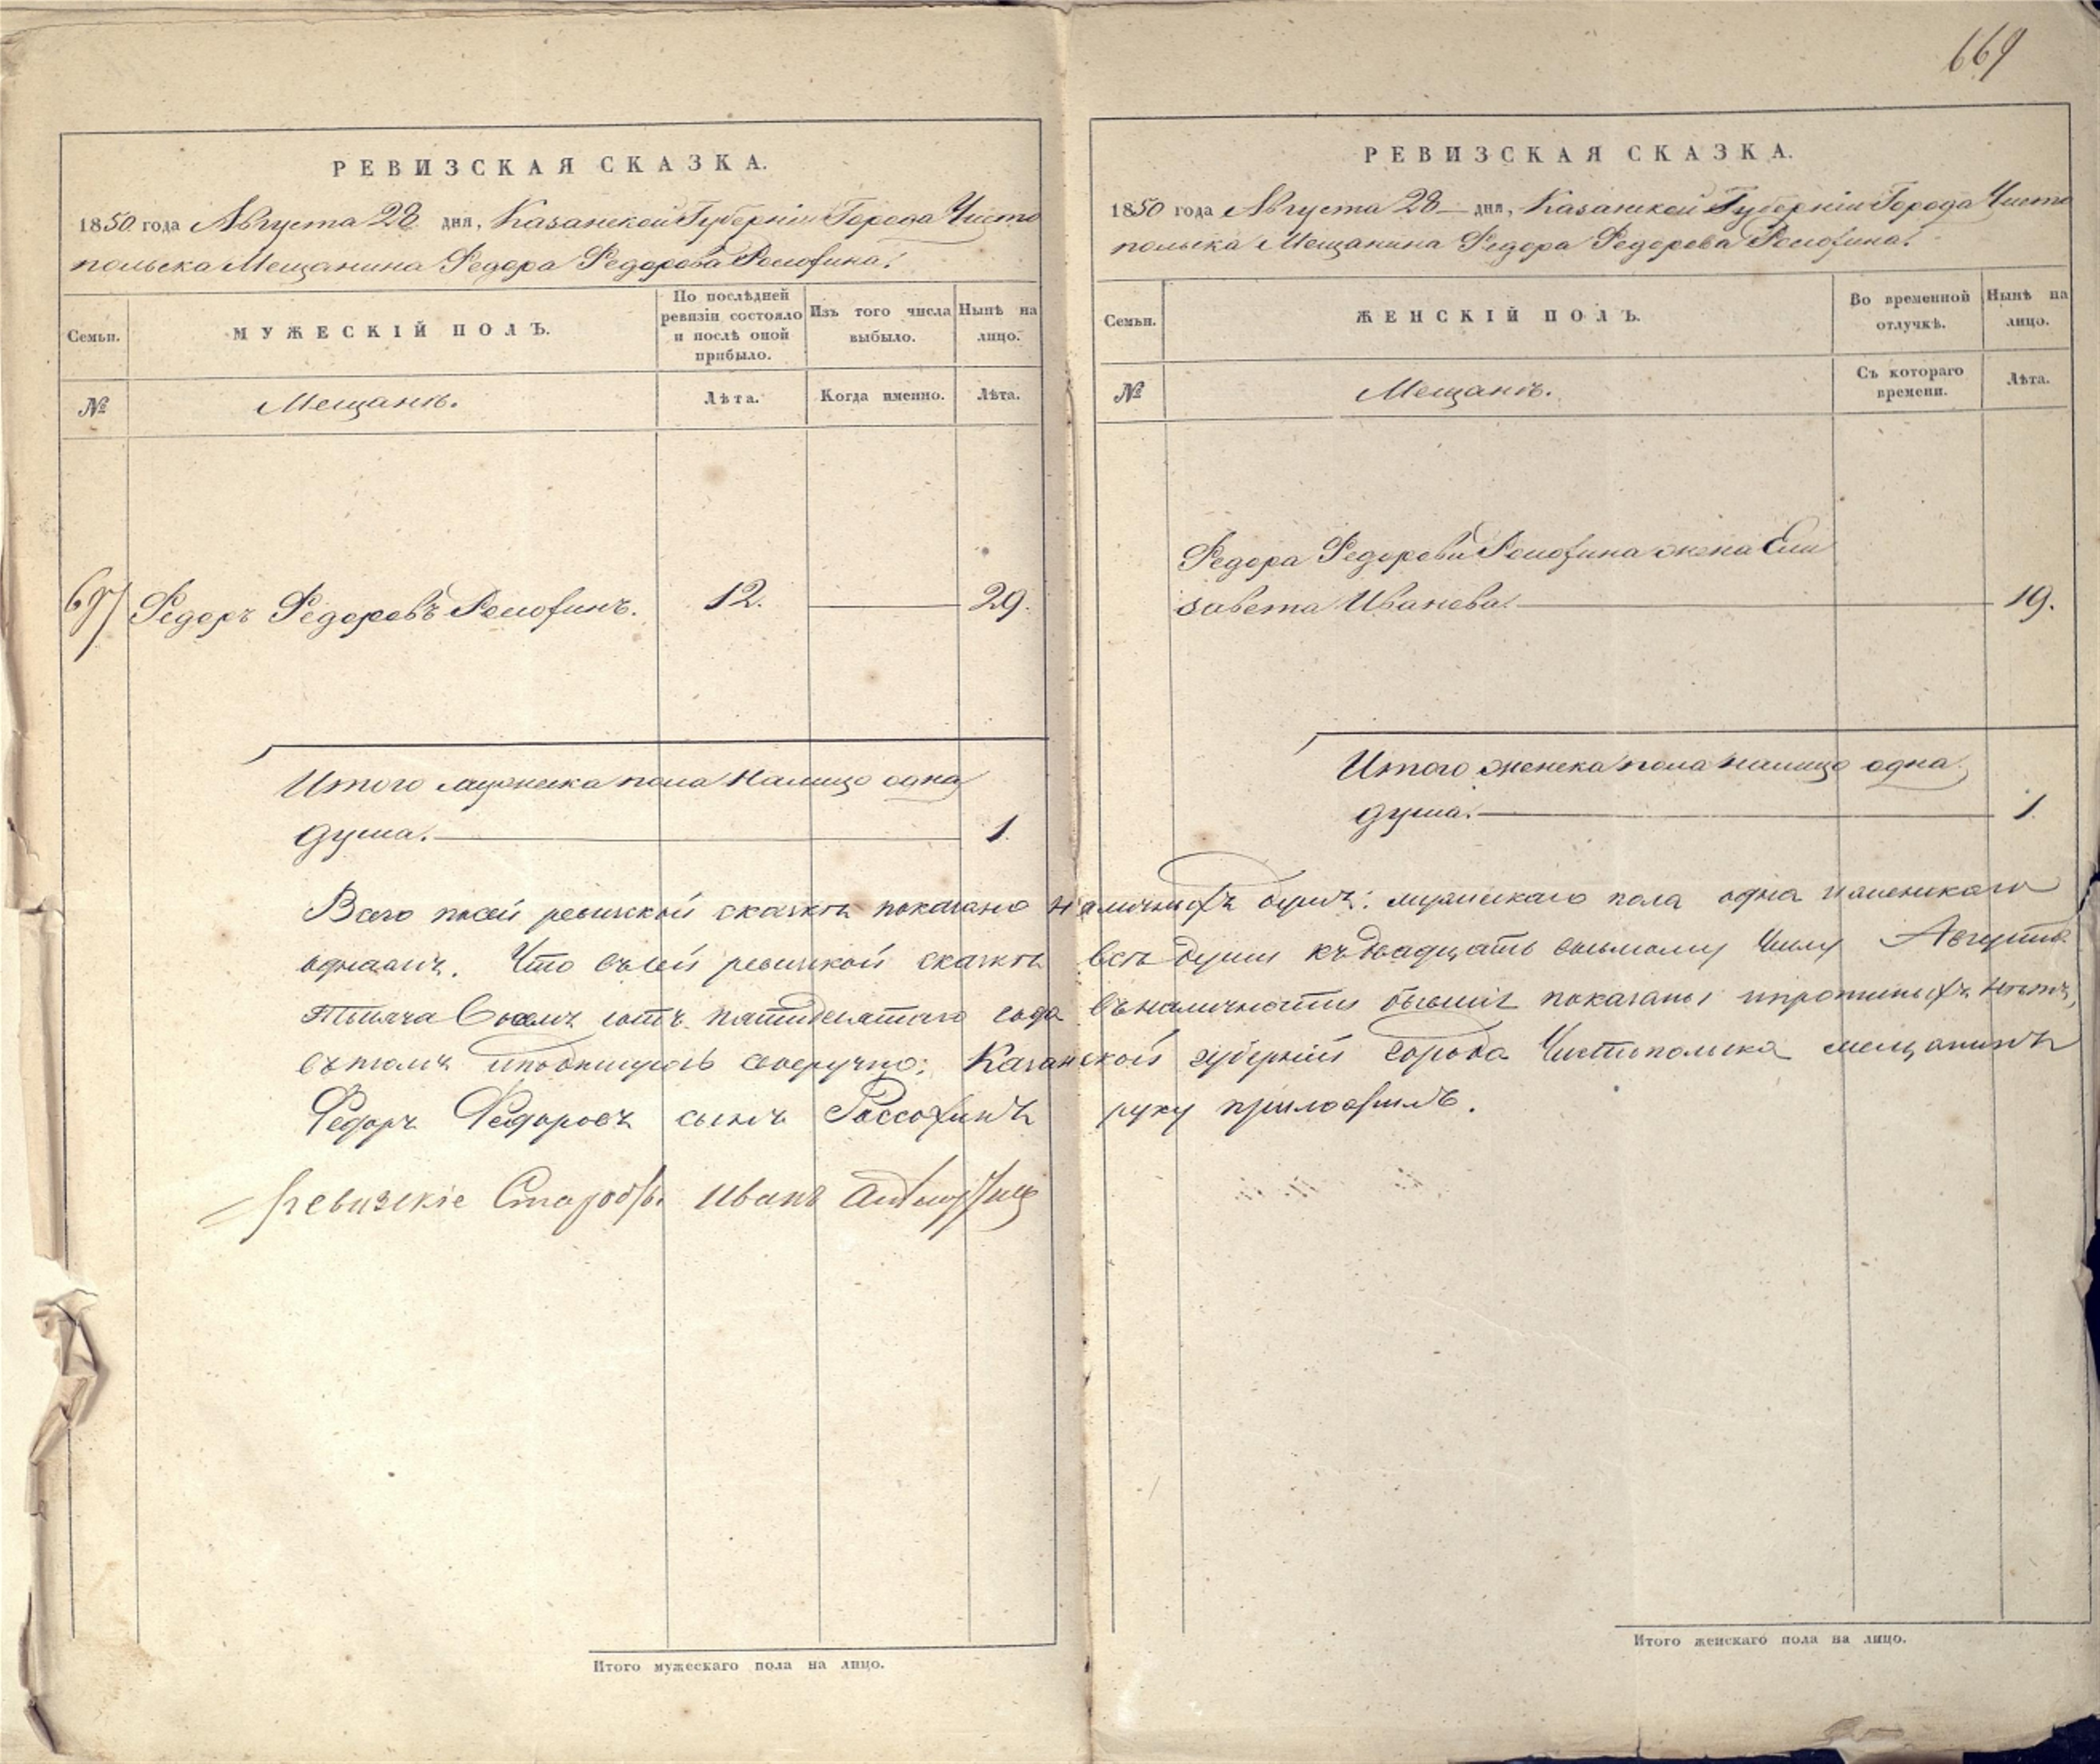 669
РЕВИЗСКАЯ СКАЗКА.
1850 года Августа 28 дня, Казанской Губерніи Города Чисто
польска Мещанина Федора Федорова Россохина.
Семьи.
МУЖЕСКІЙ ПОЛЪ.
По послѣдней ревизіи состояло и послѣ оной прибыло.
Изъ того числа выбыло.
Нынѣ на лицо.
№
Мещанѣ.
Лѣта.
Когда именно.
Лѣта.
Федоръ Федоровъ Россохинъ.
12.
29.
Итого мужеска пола налицо одна
душа.
1.
РЕВИЗСКАЯ СКАЗКА.
1850 года Августа 28 дня, Казанской Губерніи Города Чисто
польска Мещанина Федора Федорова Россохина.
Семьи.
ЖЕНСКІЙ ПОЛЪ.
Во временной отлучкѣ.
Нынѣ на лицо.
№
Мещанѣ.
Съ котораго времени.
Лѣта.
Федора Федорова Россохина жена Ели
завета Иванова.
19.
Итого женска пола налицо одна
душа.
1.
Всего посей ревизской сказкѣ показано наличныхъ душъ: мужескаго пола одна и женскаго
одна. Что въ сей ревизкой сказкѣ всѣ души къ двадцать восьмому числу Августа
Тысяча Восемь сотъ пятидесятаго года въ наличности показаны и нѣтъ,
въ томъ и подпишусь своеручно: Казанской губерніи города Чистополька мещанинъ
Федоръ Федоровъ сынъ Россохинъ руку приложилъ.
Иванъ
Итого мужескаго пола на лицо.
Итого женскаго пола на лицо.